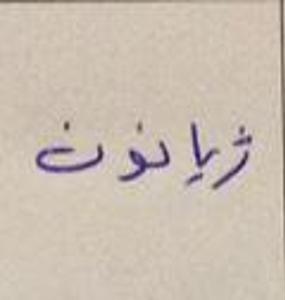 ژیانون